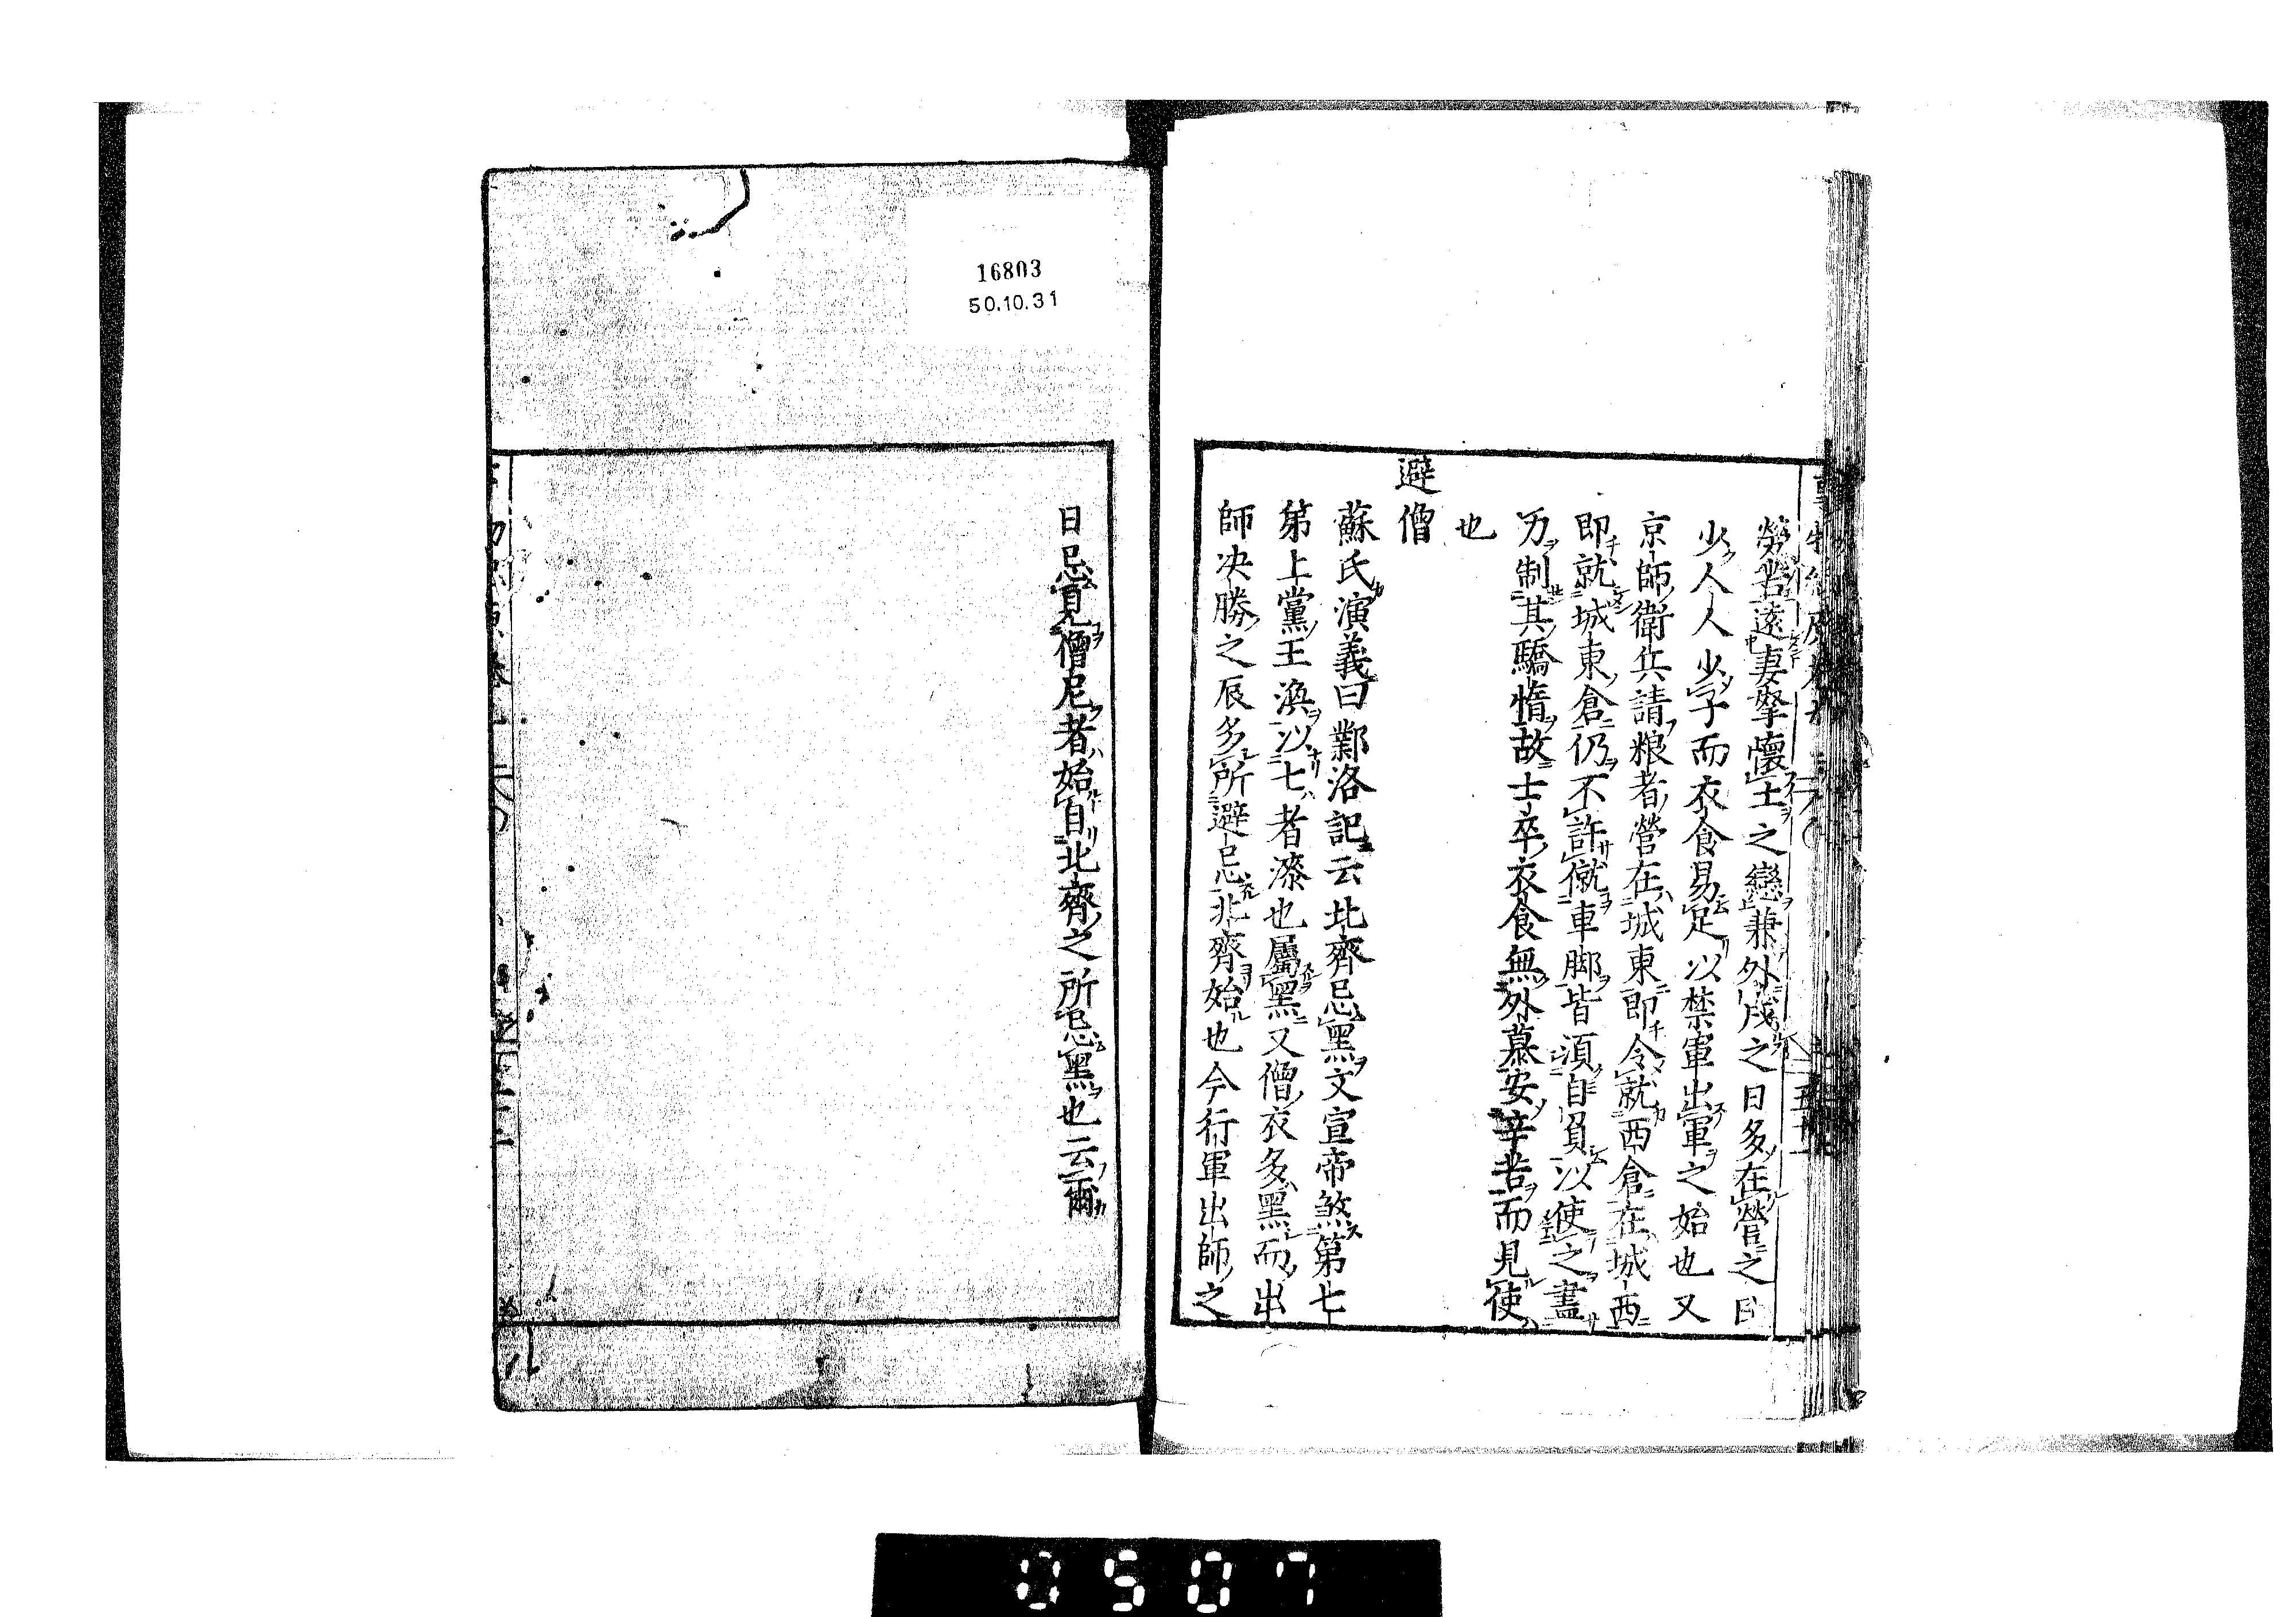 勞苦遠妻孥懷土之戀兼外戍之日多在營之日
少人人少子而衣食易足以禁軍出軍之始也又
京師衛兵請粮者營在城東即令就西倉在城西
即就城東倉仍不許僦車脚皆湏自負以使之盡
力制其驕惰故士卒衣食無外慕安辛苦而見使
也
避僧
蘇氏演義曰鄴洛記云北齊忌黑文宣帝煞第七
第上黨王渙以七者漆也屬黑又僧衣多黑而出
師决勝之辰多所避忌北齊始也今行軍出師之
日忌見僧尼者始自北齊之所忌黑也云爾
16803
50.10.31
0507